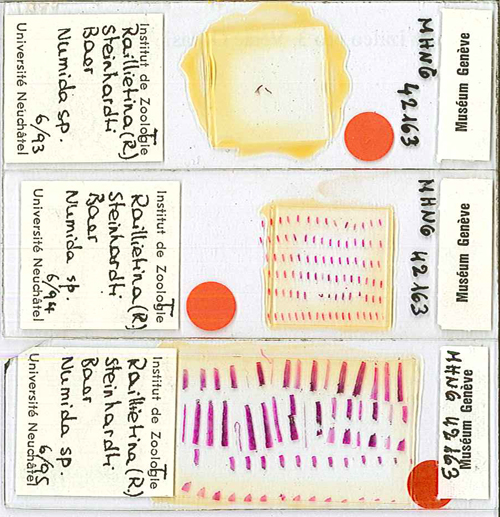 Institut de Zoologie
T
Raillietina (R.)
Steinhardti
Baer
Numida sp.
6/93
Université Neuchâtel
MHNG
42163
Muséum Genève
Institut de Zoologie
T
Raillietina (R.)
Steinhardti
Baer
Numida sp.
6/94
Université Neuchâtel
MHNG
42163
Muséum Genève
Institut de Zoologie
T
Raillietina (R.)
Steinhardti
Baer
Numida sp.
6/95
Université Neuchâtel
MHNG 42163
Muséum Genève